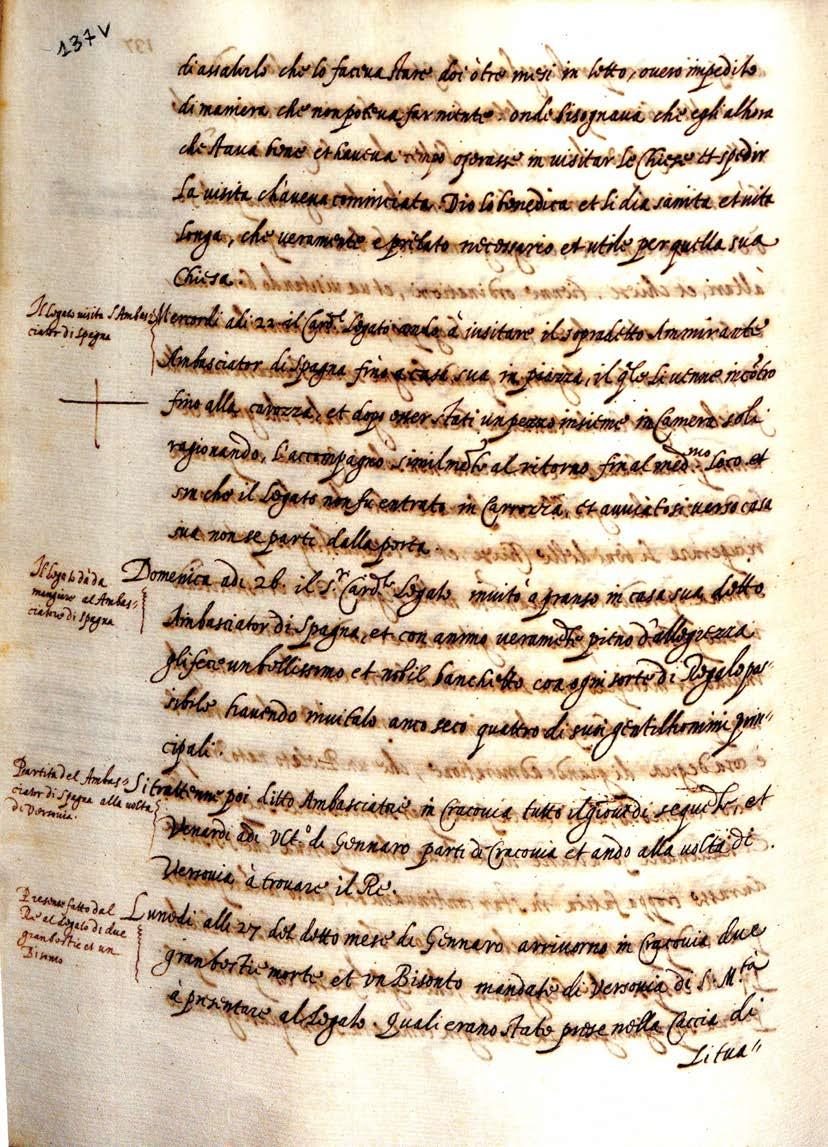 137v
di assalirlo che lo faceva stare doi ò tre mesi in letto, overo impedito
di maniera che non poteva far niente. onde bisognava che egli alhora
che stava bene et haveva tempo operasse in visitar le Chiese et spedir
la visita ch'aveva cominciata. Dio lo benedica et li dia sanita et vita
longa, che veramente e prelato necessario et utile per quella sua
Chiesa.
Il Legato visita l'Ambas-
ciator di Spagna
Mercordi adi 22 il Card.le Legato ando à visitare il sopradetto Ammirante
Ambasciator di Spagna fino a casa sua in piazza, il qle li venne incotro
fino alla carozza, et dopo esser stati un pezzo insieme in Camera soli
ragionando, l'accompagno similmte al ritorno fin al medmo loco et
sin che il Legato non fu entrato in Carrozza, et avviatosi verso casa
sua non se parti dalla porta.
Il Legato dà da
mangiare al Ambas-
ciatore di Spagna
Domenica adi 26. il S.r Card.le Legato invitò à pranso in casa sua detto
Ambasciator di Spagna, et con animo veramte pieno d'allegrezza
gli fece un bellissimo et nobil banchetto con ogni sorte di Regalo pos-
sibile havendo invitato anco seco quattro di suoi gentilhomini prin-
cipali.
Partita del Ambas-
ciator di Spagna alla volta
di Versovia.
Si trattenne poi ditto Ambasciatore in Cracovia tutto il giovedi seguete, et
Venardi adi ult.o di Gennaro parti di Cracovia et ando alla volta di
Versovia à trovare il Re.
Presente fatto dal
Re al Legato di due
granbestie et un
Bisonto
Lunedi alli 27 del detto mese di Gennaro arrivorno in Cracovia due
granbestie morte et un Bisonto mandate di Versovia di S. M.tà
à psentare al Legato. Quali erano state prese nella Caccia di
Litua-